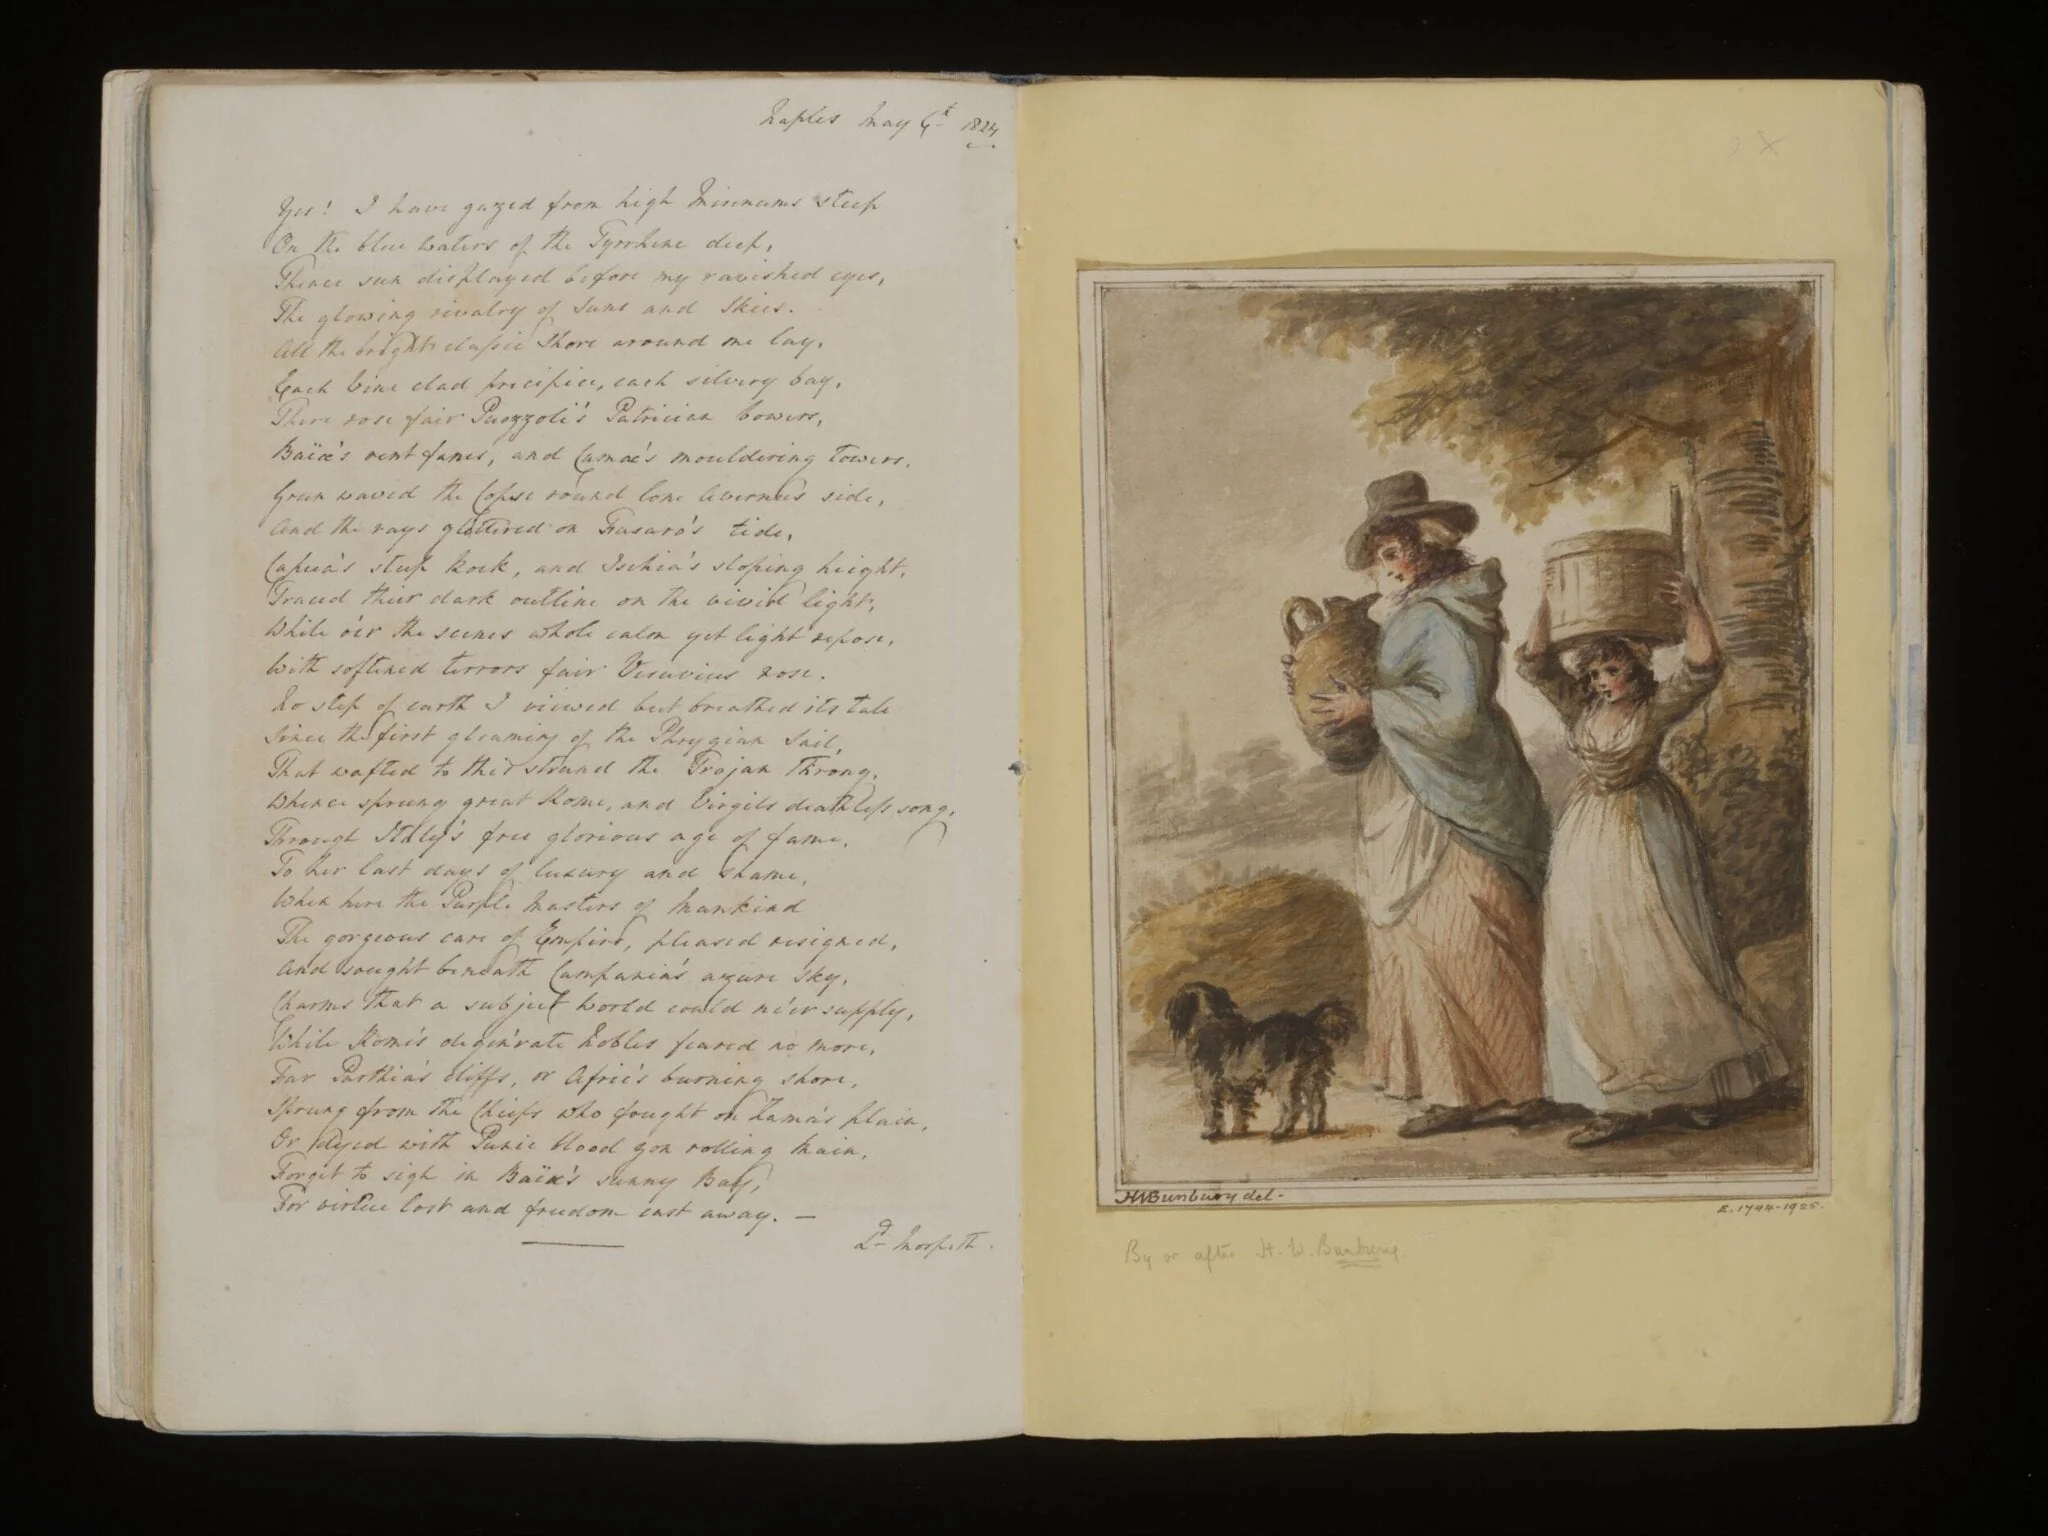 Naples May 6th 1824
Yes! I have gazed from high Misenums steep
On the blue waters of the Tyrrhene deep,
Thence seen displayed before my ravished eyes,
The glowing rivalry of Suns and Skies.
All the bright classic Shore around me lay,
Each Vine clad precipice, each silvery bay,
There rose fair Puozzoli's Patrician bowers,
Baïæ's rent fanes, and Cumæ's mouldering towers,
Green waved the Copse round lone Avernus's side,
And the rays glittered on Fusaro's tide,
Caprea's steep Rock, and Ischia's sloping height,
Traced their dark outline on the vivid light,
While o'er the scenes whole calm yet light repose,
With softened terrors fair Vesuvius rose.
No step of earth I viewed but breathed its tale
Since the first gleaming of the Phrygian Sail,
That wafted to this strand the Trojan Throng,
Whence sprung great Rome, and Virgils deathless song,
Through Italy's free glorious age of fame,
To her last days of luxury and shame,
When here the Purple Masters of Mankind
The gorgeous care of Empire, pleased resigned,
And sought beneath Campania's azure Sky,
Charms that a subject World could ne'er supply,
While Rome's degen'rate Nobles feared no more,
Far Parthia's cliffs, or Afric's burning shore,
Sprung from the Chiefs who fought on Zama's plain,
Or dyed with Punic blood yon rolling Main,
Forget to sigh in Baïæ's sunny Bay,
For virtue lost and freedom cast away. —
Ld Morpeth.
HWBunbury del-
E.1744-1925.
By or after H. W. Bunbury